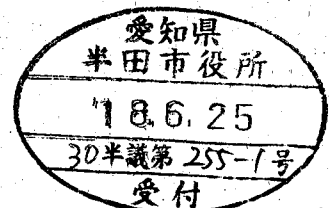 愛知県
半田市役所
'18.6.25
30半議第255-1号
受付